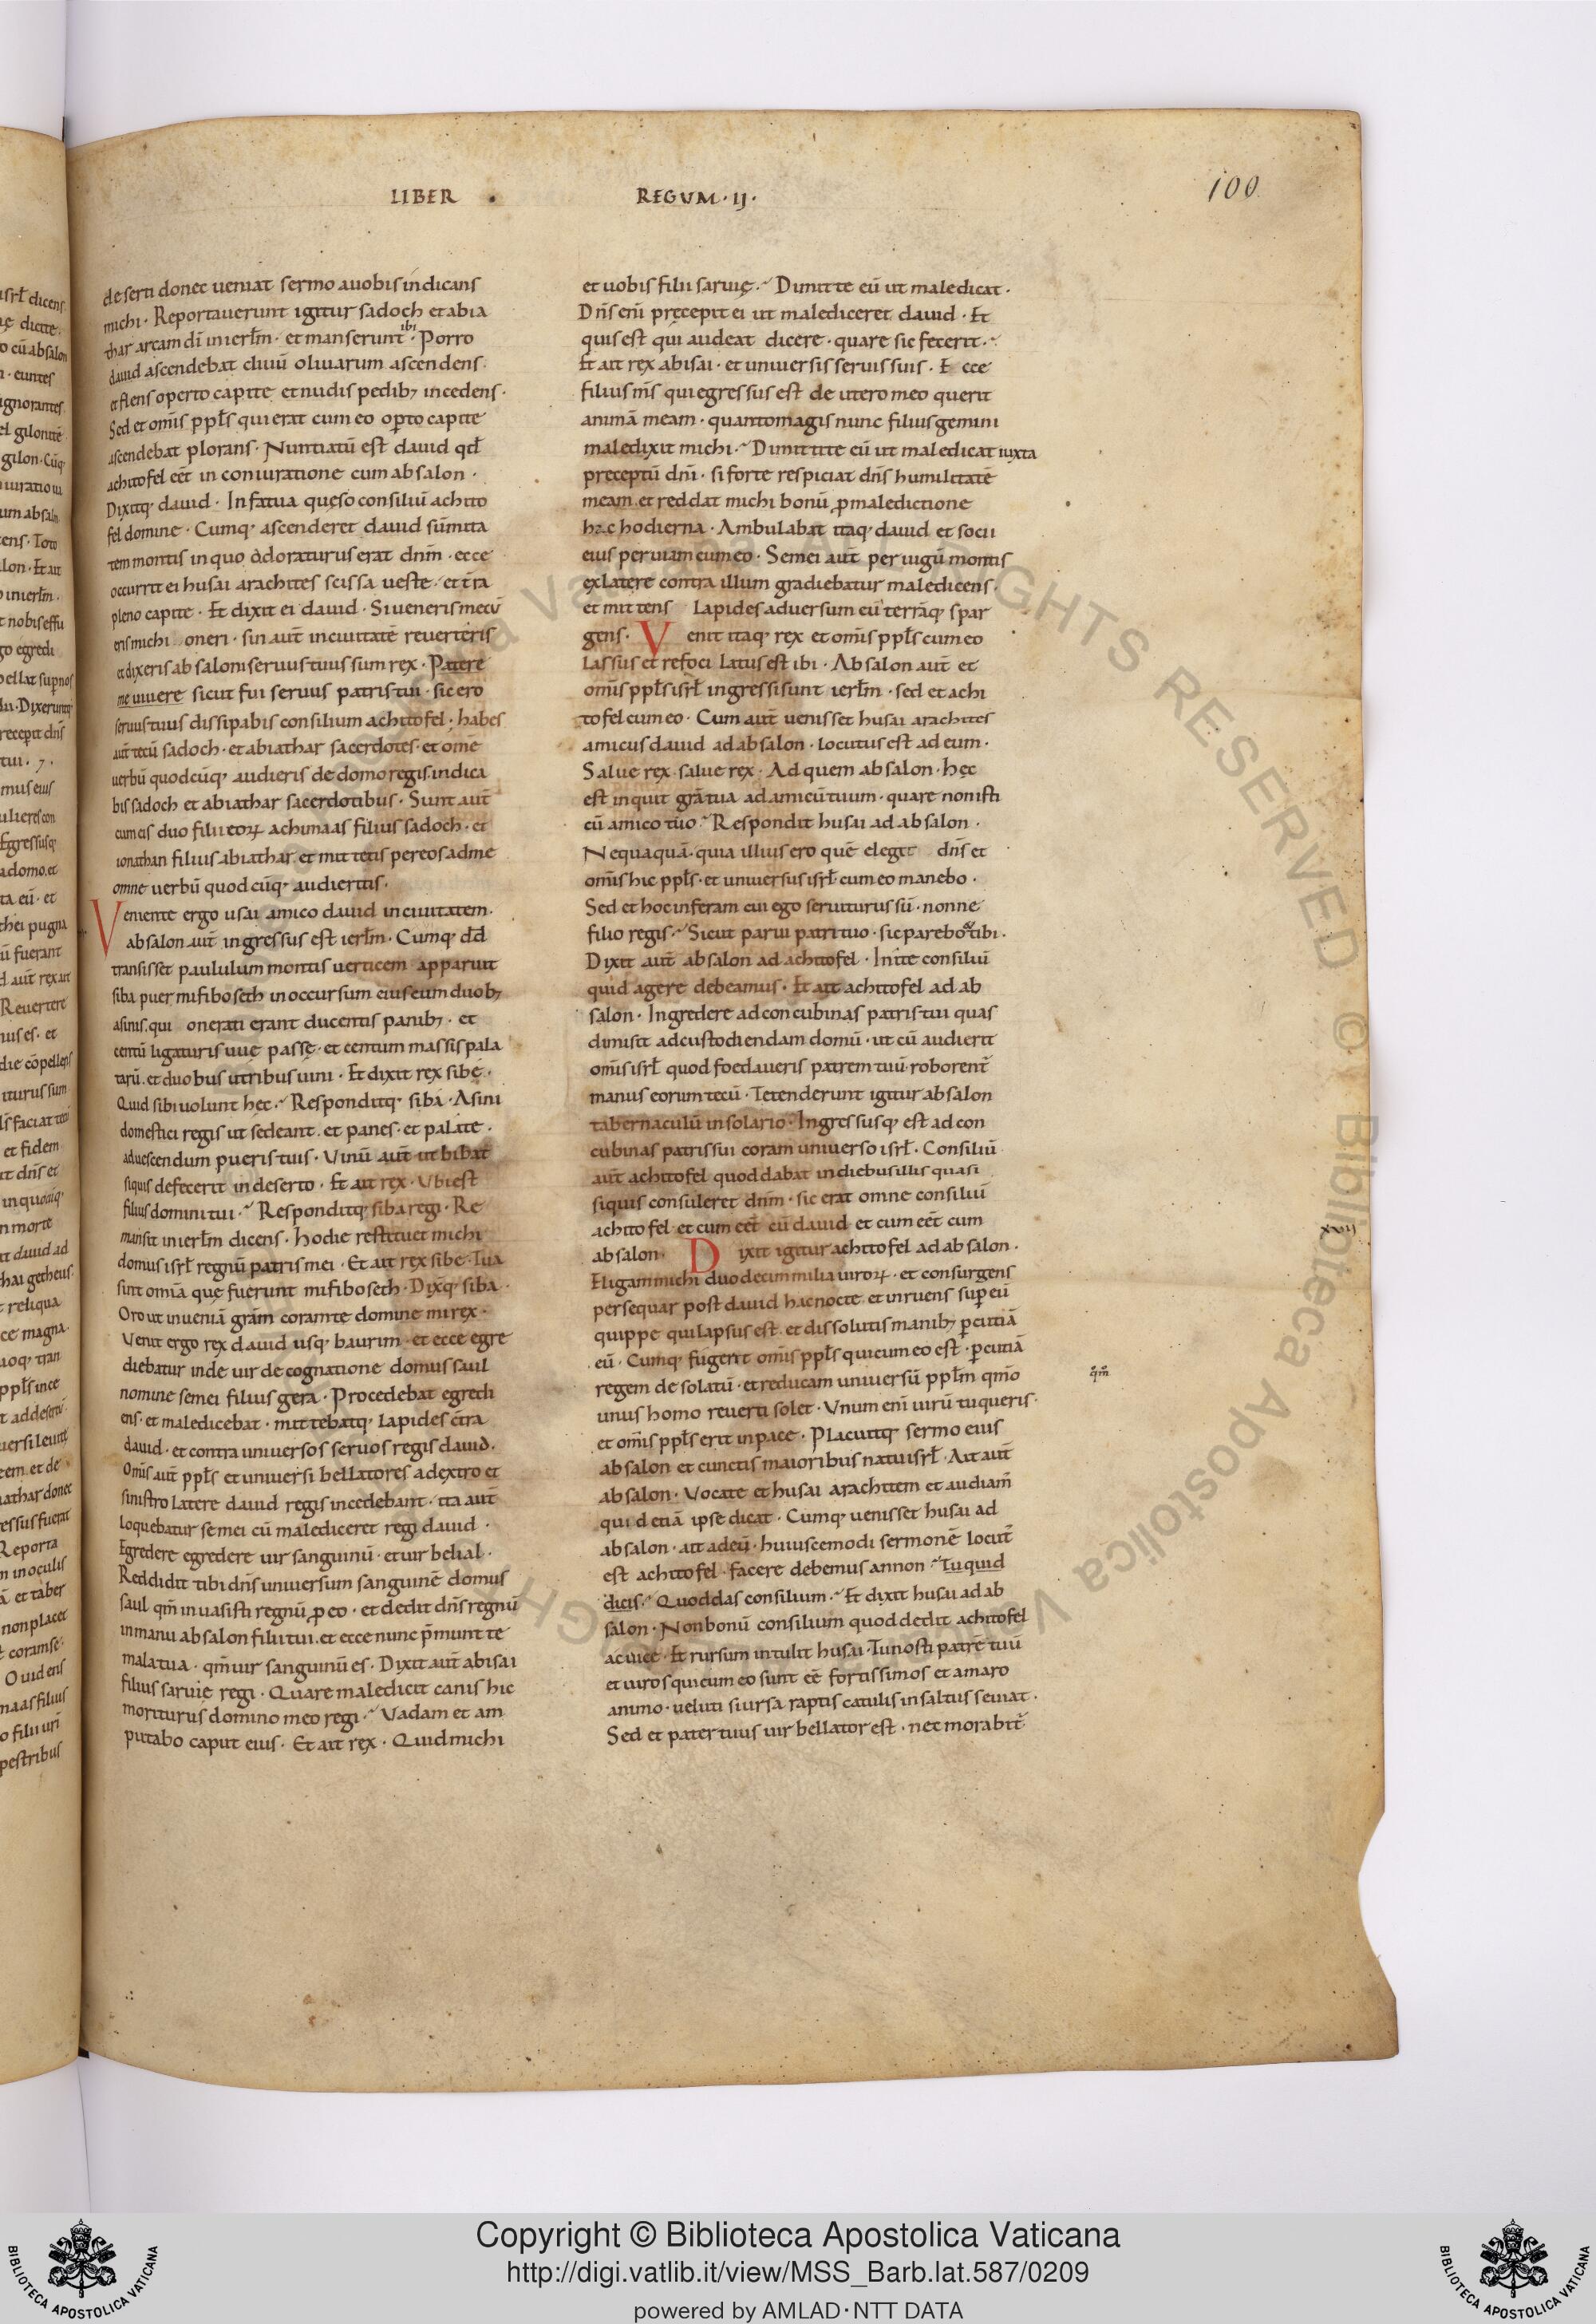 LIBER · REGUM · IJ ·
100
deserti donec ueniat sermo auobis indicans
michi · Reportauerunt igitur sadoch et abia
thar arcam dī in ierłm · et manserunt ibi · Porro
dauid ascendebat cliuū oliuarum ascendens
et flens operto capite et nudis pedib; incedens ·
Sed et omīs pplṡ qui erat cum eo opto capite
ascendebat plorans · Nuntiatū est dauid qđ
achitofel eēt in coniuratione cum absalon ·
Dixitq; dauid · Infatua queso consiliū achito
fel domine · Cumq; ascenderet dauid sūmita
tem montis in quo adoraturus erat dnm̄ · ecce
occurrit ei husai arachites scissa ueste · et t̄ra
pleno capite · Et dixit ei dauid · Si ueneris mecū
eris michi oneri · sin aut̄ in ciuitatē reuerteris
et dixeris absaloni seruus tuus sum rex · Patere
me uiuere sicut fui seruus patris tui · sic ero
seruus tuus dissipabis consilium achitofel · habes
aut̄ tecū sadoch · et abiathar sacerdotes · et omē
uerbū quodcūq; audieris de domo regis · indica
bis sadoch et abiathar sacerdotibus · Sunt aut̄
cum eis duo filii eoꝝ achimaas filius sadoch · et
ionathan filius abiathar et mittetis per eos ad me
omne uerbū quodcūq; audieritis ·
Veniente ergo usai amico dauid in ciuitatem ·
absalon aut̄ ingressus est ierłm · Cumq; dd̄
transisset paululum montis uerticem apparuit
siba puer mifiboseth in occursum eius cum duob;
asinis · qui onerati erant ducentis panib; · et
centū ligaturis uue passę · et centum massis pala
tarū · et duobus utribus uini · Et dixit rex sibę ·
Quid sibi uolunt hęc · Responditq; siba · Asini
domestici regis ut sedeant · et panes · et palate ·
ad uescendum pueris tuis · Vinū aut̄ ut bibat
siquis defecerit in deserto · Et ait rex · Vbi est
filius domini tui · Responditq; siba regi · Re
mansit in ierłm dicens · hodie restituet michi
domus isrł regnū patris mei · Et ait rex sibę · Tua
sint omīa que fuerunt mifiboseth · Dixq; siba ·
Oro ut inueniā grām coram te domine mi rex ·
Venit ergo rex dauid usq; baurim · et ecce egre
diebatur inde uir de cognatione domus saul
nomine semei filius gera · Procedebat egredi
ens · et maledicebat · mittebatq; lapides cōtra
dauid · et contra uniuersos seruos regis dauid ·
Omīs aut̄ pplṡ et uniuersi bellatores a dextro et
sinistro latere dauid regis incedebant · ita aut̄
loquebatur semei cū malediceret regi dauid ·
Egredere egredere uir sanguinū · et uir belial ·
Reddidit tibi dnṡ uniuersum sanguinē domus
saul qm̄ inuasisti regnū ꝓ eo · et dedit dnṡ regnū
in manu absalon filii tui · et ecce nunc p̄munt te
mala tua · qm̄ uir sanguinū es · Dixit aut̄ abisai
filius saruie regi · Quare maledicit canis hic
moriturus domino meo regi · Vadam et am
putabo caput eius · Et ait rex · Quid michi
et uobis filii saruię · Dimitte eū ut maledicat ·
Dnṡ enī pręcepit ei ut malediceret dauid · Et
quis est qui audeat dicere · quare sic fecerit ·
Et ait rex abisai · et uniuersis seruis suis · Ecce
filius mṡ qui egressus est de utero meo querit
animā meam · quanto magis nunc filius gemini
maledixit michi · Dimitite eū ut maledicat iuxta
preceptū dnī · si forte respiciat dnṡ humilitatē
meam et reddat michi bonū ꝓ maledictione
hac hodierna · Ambulabat itaq; dauid et socii
eius per uiam cum eo · Semei aut̄ per iugū montis
ex latere contra illum gradiebatur maledicens ·
et mittens lapides aduersum eū terrāq; spar
gens · Venit itaq; rex et omīs pplṡ cum eo
lassus et refocilatus est ibi · Absalon aut̄ et
omīs pplṡ isrł ingressi sunt ierłm · sed et achi
tofel cum eo · Cum aut̄ uenisset husai arachites
amicus dauid ad absalon · locutus est ad eum ·
Salue rex · salue rex · Ad quem absalon · hęc
est inquit grā tua ad amicū tuum · quare non isti
cū amico tuo · Respondit husai ad absalon ·
Nequaquā · quia illius ero quē elegit dnṡ et
omīs hic pplṡ · et uniuersus isrł · cum eo manebo ·
Sed et hoc inferam cui ego seruiturus sū · nonne
filio regis · Sicut parui patri tuo · sic parebo tibi ·
Dixit aut̄ absalon ad achitofel · Inite consiliū
quid agere debeamus · Et ait achitofel ad ab
salon · Ingredere ad concubinas patris tui quas
dimisit ad custodiendam domū · ut cū audierit
omīs isrł quod foedaueris patrem tuū · roborent̄
manus eorum tecū · Tetenderunt igitur absalon
tabernaculū in solario · Ingressusq; est ad con
cubinas patris sui coram uniuerso isrł · Consiliū
aut̄ achitofel quod dabat in diebus illis quasi
siquis consuleret dnm̄ · sic erat omne consiliū
achitofel et cum eēt cū dauid et cum eēt cum
absalon · Dixit igitur achitofel ad absalon ·
xvij
Eligam michi duodecim milia uiroꝝ · et consurgens
persequar post dauid hac nocte et inruens sup̄ eū
quippe qui lapsus est et dissolutis manib; ꝑcutiā
eū · Cumq; fugerit omīs pplṡ qui cum eo est · ꝑcutiā
regem desolatū · et reducam uniuersū pplm̄ qm̄o
unus homo reuerti solet · Vnum enī uirū tu queris ·
et omīs pplṡ erit in pace · Placuitq; sermo eius
absalon et cunctis maioribus natu isrł · Ait aut̄
absalon · Vocate et husai arachitem et audiam̄
quid etiā ipse dicat · Cumq; uenisset husai ad
absalon · ait ad eū · huiuscemodi sermonē locut̄
est achitofel · facere debemus an non · Tu quid
dicis · Quod das consilium · Et dixit husai ad ab
salon · Non bonū consilium quod dedit achitofel
ac uice · Et rursum intulit husai · Tu nosti patrē tuū
et uiros qui cum eo sunt eē fortissimos et amaro
animo · ueluti si ursa raptis catulis in saltus seuiat ·
Sed et pater tuus uir bellator est · nec morabit̄
Copyright © Biblioteca Apostolica Vaticana
http://digi.vatlib.it/view/MSS_Barb.lat.587/0209
powered by AMLAD·NTT DATA
BIBLIOTECA APOSTOLICA VATICANA
BIBLIOTECA APOSTOLICA VATICANA